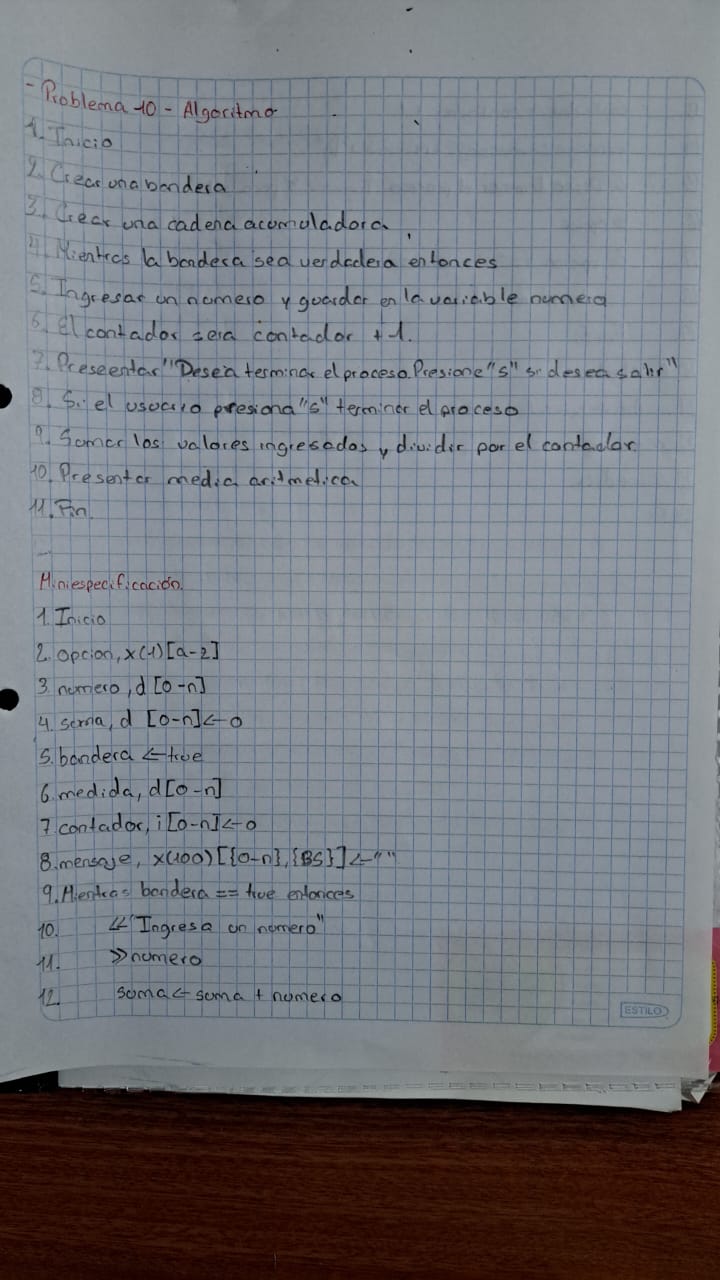 - Problema 10 - Algoritmo
1. Inicio
2. Crear una bandera
3. Crear una cadena acumuladora
4. Mientras la bandera sea verdadera entonces
5. Ingresar un numero y guardar en la variable numero
6. El contador sera contador + 1.
7. Preseentar "Desea terminar el proceso. Presione "s" si desea salir"
8. Si el usuario presiona "s" terminar el proceso
9. Sumar los valores ingresados y dividir por el contador.
10. Presentar media aritmetica
11. Fin.
Miniespecificación.
1. Inicio
2. opcion, x(1)[a-z]
3. numero, d [0-n]
4. suma, d [0-n]<-0
5. bandera <- true
6. medida, d[0-n]
7. contador, i[0-n]<-0
8. mensaje, x(100)[{0-n},{BS}]<-""
9. Mientras bandera == true entonces
10. <<"Ingresa un numero"
11. >>numero
12. suma<-suma + numero
ESTILO